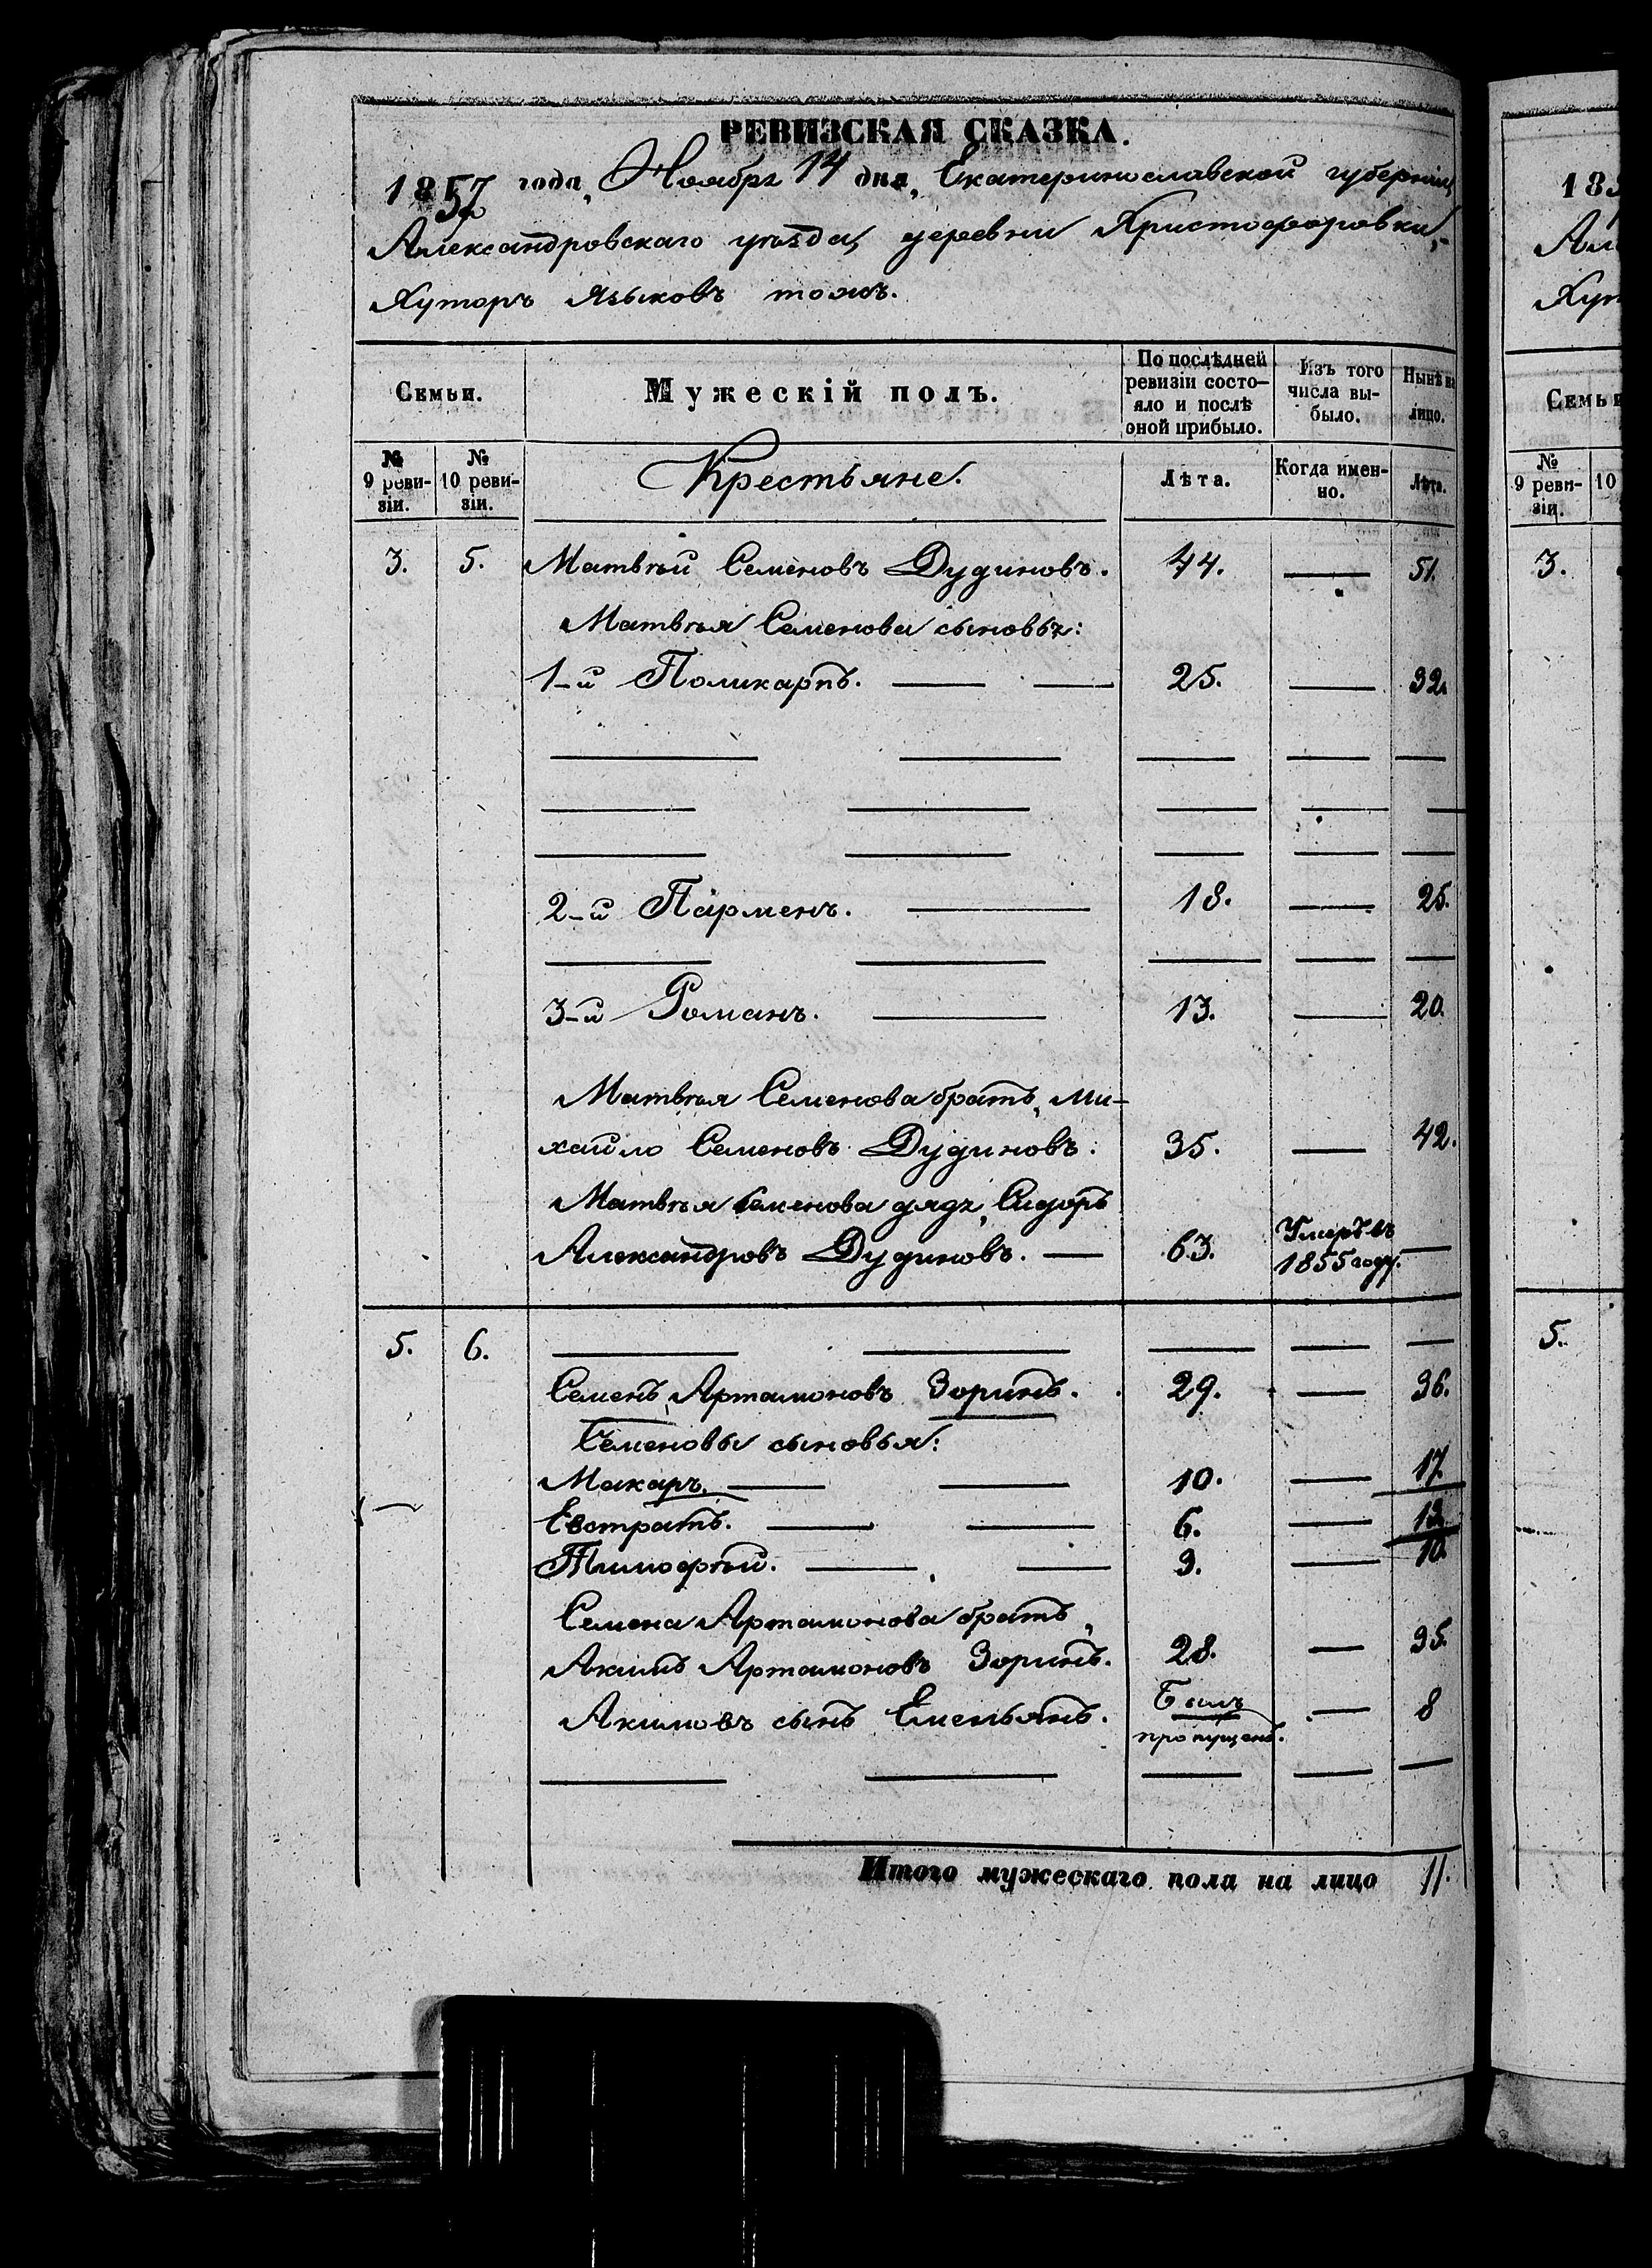 РЕВИЗСКАЯ СКАЗКА.
1857 года, Ноября 14 дня, Екатеринославской губернии,
Александровскаго уѣзда, деревни Христофоровки,
Хуторъ Языковъ тожъ.
Семьи. Мужескій полъ. По послѣдней ревизіи состо- яло и послѣ оной прибыло. Изъ того числа вы- было. Нынѣ на лицо.
№ 9 реви- зіи. № 10 реви- зіи. Крестьяне. Лѣта. Когда имен- но. Лѣта.
3. 5. Матвѣй Семеновъ Дудиновъ. 44. — 51.
Матвѣя Семенова сыновья:
1-й Поликарпъ. — — 25. — 32.
2-й Парменъ. — 18. — 25.
3-й Романъ. — 13. — 20.
Матвѣя Семенова братъ, Ми-
хайло Семеновъ Дудиновъ. 35. — 42.
Матвѣя Семенова дядя, Сидоръ
Александровъ Дудиновъ. — 63. Умеръ въ 1855 году. —
5. 6. — — — — —
Семенъ Артамоновъ Зоринъ. 29. — 36.
Семеновы сыновья:
Макаръ. — — 10. — 17.
Евстратъ. — — 6. — 13.
Тимофѣй. — — 3. — 10.
Семена Артамонова братъ,
Акимъ Артамоновъ Зоринъ. 28. — 35.
Акимовъ сынъ Емельянъ. Былъ пропущенъ. — 8
Итого мужескаго пола на лицо 11.
183
Але
Хут
Семьи
№ 9 реви- зіи. 10
3.
5.